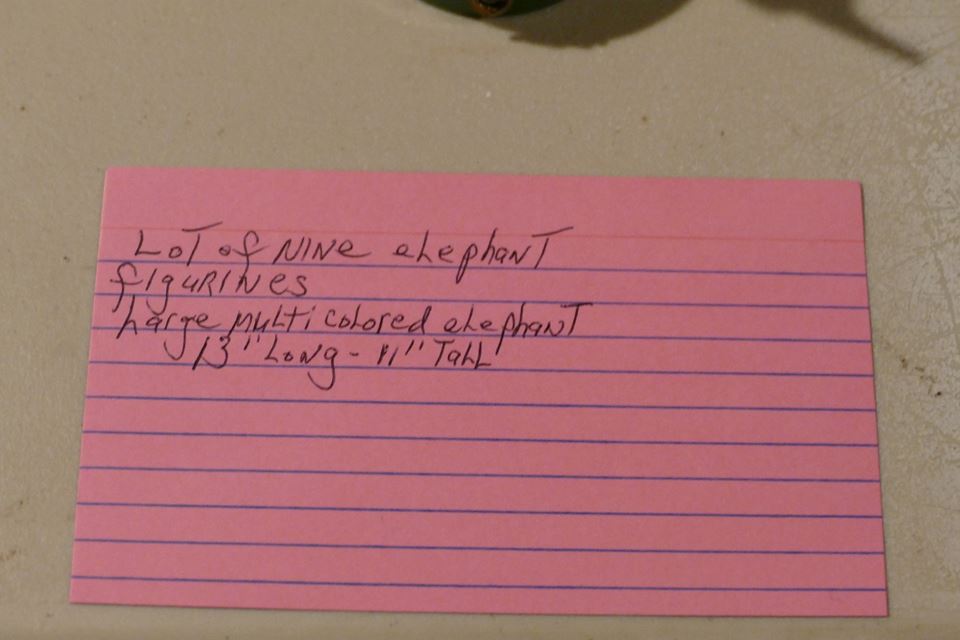 LoT of NINE eLephanT
figuRINes
Large muLTi coLored eLephanT
13" Long - 11" TaLL